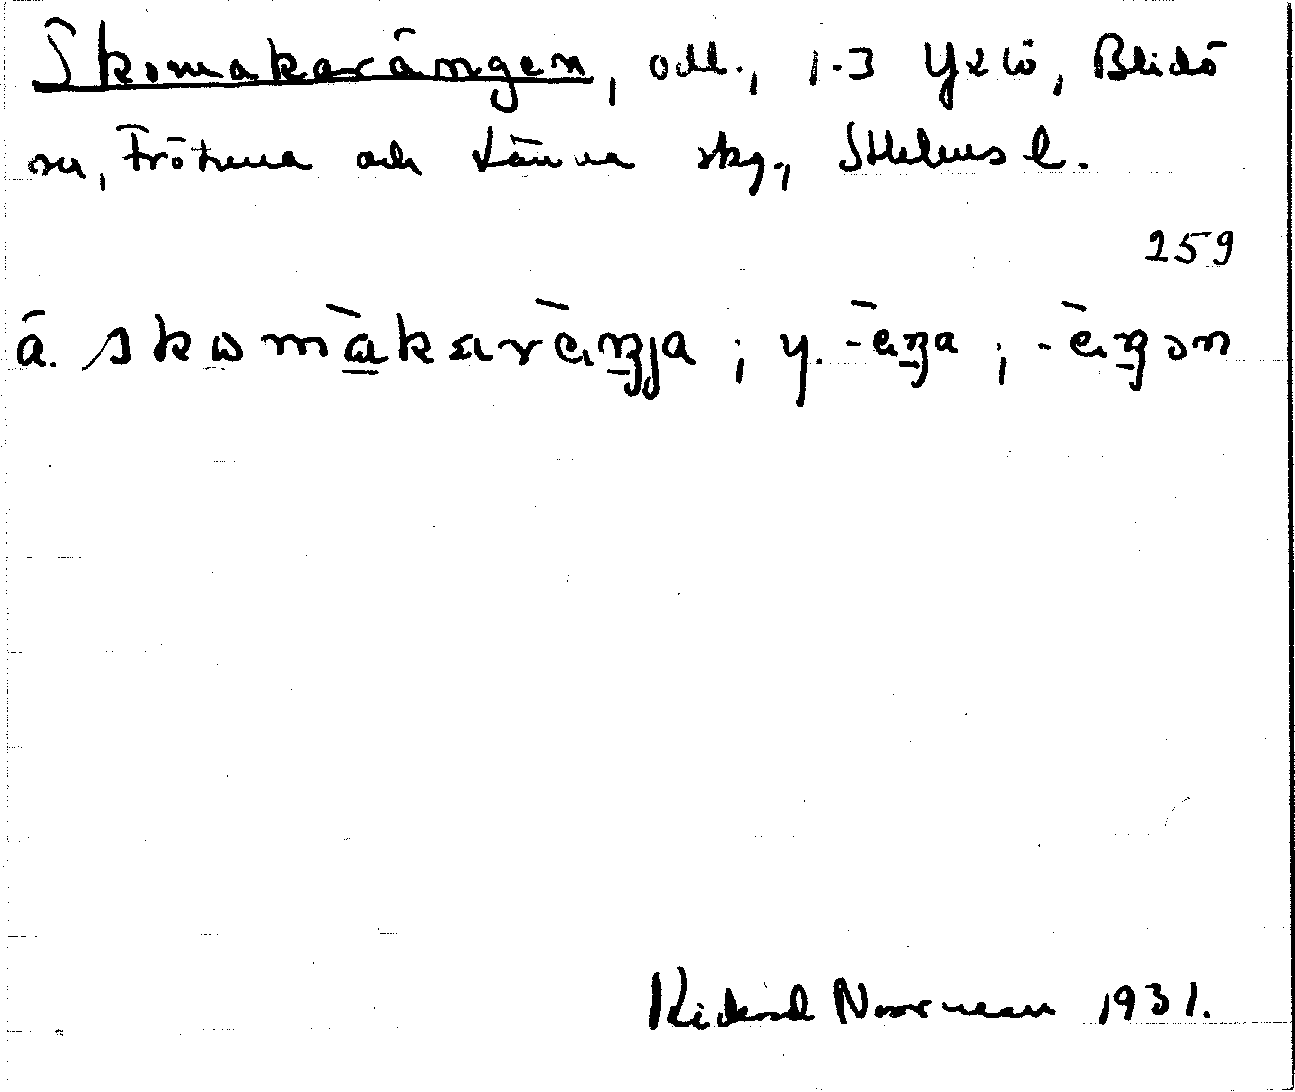 Skomakarängen, odl., 1-3 Yxlö, Blidö
sn, Frötuna och Länna skg., Sthlms l.
259
ä. skomàkaràŋja; y. -àŋa; -àŋən
Rickard Norrman 1931.